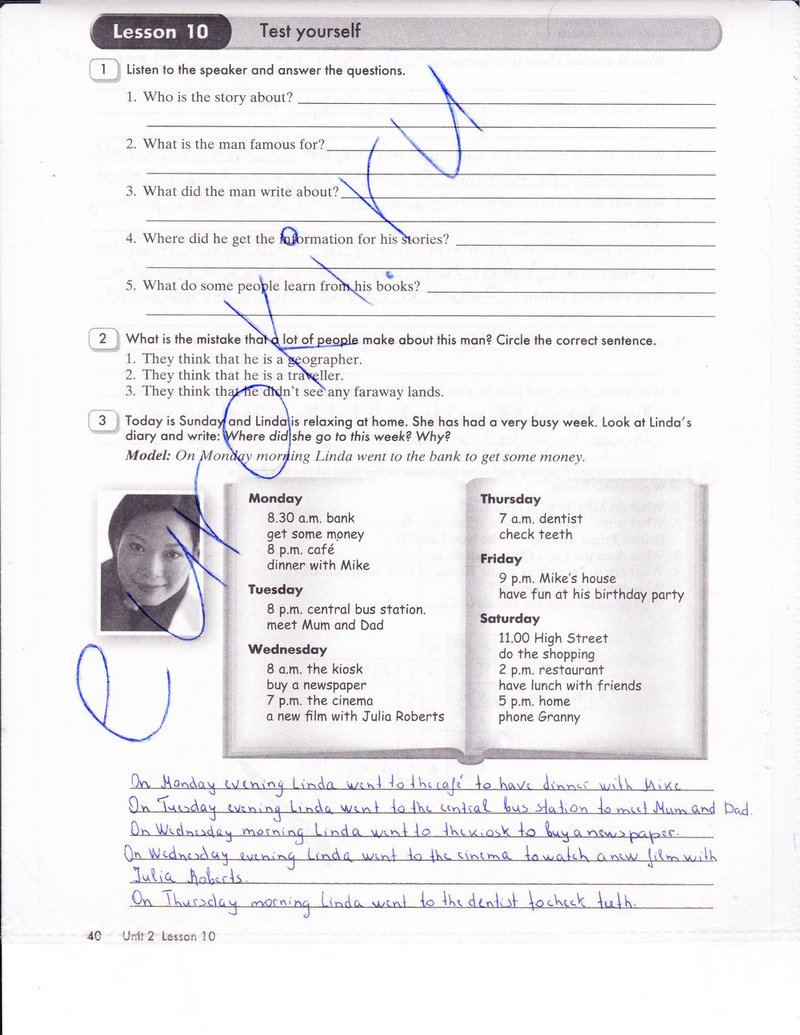 Lesson 10 Test yourself
1 Listen to the speaker and answer the questions.
1. Who is the story about?
2. What is the man famous for?
3. What did the man write about?
4. Where did he get the information for his stories?
5. What do some people learn from his books?
2 What is the mistake that a lot of people make about this man? Circle the correct sentence.
1. They think that he is a geographer.
2. They think that he is a traveller.
3. They think that he didn't see any faraway lands.
3 Today is Sunday and Linda is relaxing at home. She has had a very busy week. Look at Linda's
diary and write: Where did she go to this week? Why?
Model: On Monday morning Linda went to the bank to get some money.
Monday
8.30 a.m. bank
get some money
8 p.m. café
dinner with Mike
Tuesday
8 p.m. central bus station.
meet Mum and Dad
Wednesday
8 a.m. the kiosk
buy a newspaper
7 p.m. the cinema
a new film with Julia Roberts
Thursday
7 a.m. dentist
check teeth
Friday
9 p.m. Mike's house
have fun at his birthday party
Saturday
11.00 High Street
do the shopping
2 p.m. restaurant
have lunch with friends
5 p.m. home
phone Granny
On Monday evening Linda went to the café to have dinner with Mike
On Tuesday evening Linda went to the central bus station to meet Mum and Dad.
On Wednesday morning Linda went to the kiosk to buy a newspaper.
On Wednesday evening Linda went to the cinema to watch a new film with
Julia Roberts.
On Thursday morning Linda went to the dentist to check teeth.
40 Unit 2 Lesson 10
eurokit.ru